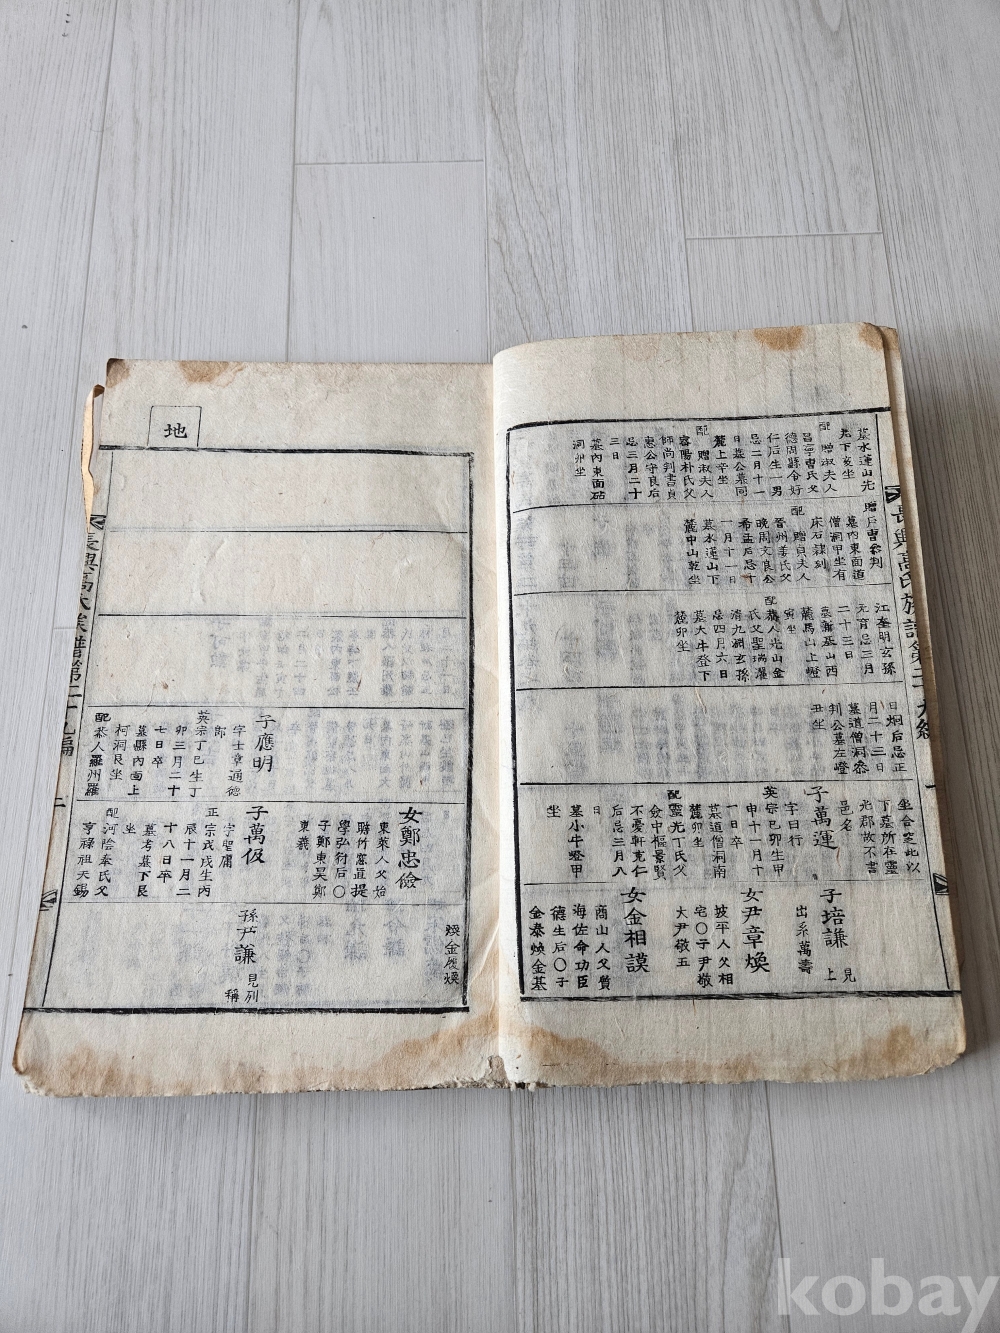 墓水蓮山先
兆下亥坐
配 贈淑夫人
昌寧曺氏父
德周縣令好
仁后生一男
忌二月十一
日墓公墓同
麓上辛坐
配 贈淑夫人
密陽朴氏父
師尚判書貞
惠公守良后
忌三月二十
三日
墓內東面砧
洞卯坐
贈戶曹參判
墓內東面道
僧洞甲坐有
床石謙刻
配 贈貞夫人
晉州姜氏父
晚周文良公
希孟后忌十
一月十一日
墓水蓮山下
麓中山乾坐
江奎明玄孫
元育忌三月
二十三日
墓新基山西
麓馬山上嶝
寅坐
配恭人光山金
氏父聖瑞濯
清九淵玄孫
忌四月六日
墓大牛登下
麓卯坐
日炯后忌正
月二十三日
墓道僧洞參
判公墓左嶝
丑坐
坐合窆此以
下墓所在靈
光郡故不書
邑名
子萬運
字日行
英宗己卯生甲
申十一月十
一日卒
墓道僧洞南
麓卯坐
配靈光丁氏父
僉中樞景賢
不憂軒克仁
后忌三月八
日
墓小牛嶝甲
坐
子培謙 見上
出系萬壽
女尹章煥
坡平人父相
宅〇子尹敬
大尹敬五
女金相謨
商山人父質
海佐命功臣
德生后〇子
金泰煥金基
長興高氏族譜第二十九編
地
煥金履煥
女鄭忠儉
東萊人父始
聃竹窓直提
學弘衍后〇
子鄭東昊鄭
東羲
子應明
字士章通德
郎
英宗丁巳生丁
卯三月二十
七日卒
墓縣內面上
柯洞艮坐
配恭人羅州羅
子萬伋
字聖庸
正宗戊戌生丙
辰十一月二
十八日卒
墓考墓下艮
坐
配河陰奉氏父
亨祿祖天錫
孫尹謙 見別稱
長興高氏族譜第二十九編
二
kobay